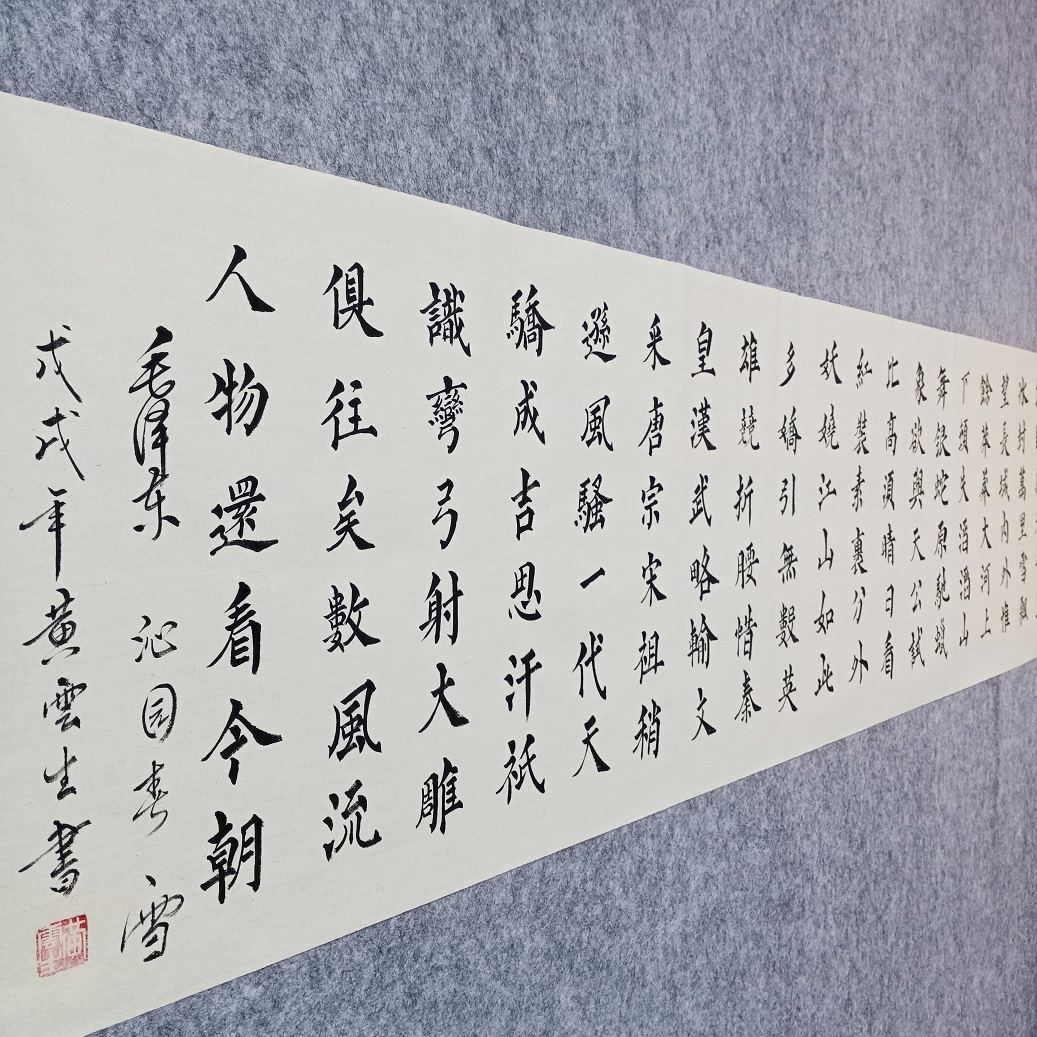 冰封萬里雪飄
望長城内外惟
餘莽莽大河上
下頓失滔滔山
舞銀蛇原馳蠟
象欲與天公試
比高須晴日看
紅裝素裹分外
妖嬈江山如此
多嬌引無數英
雄競折腰惜秦
皇漢武略輸文
采唐宗宋祖稍
遜風騷一代天
驕成吉思汗祇
識彎弓射大雕
俱往矣數風流
人物還看今朝
毛泽东 沁园春 雪
戊戌年黄雲生書